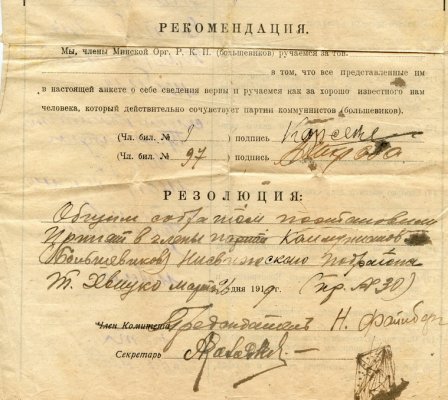 РЕКОМЕНДАЦИЯ.
Мы, члены Минской Орг. Р. К. П. (большевиков) ручаемся за тов.
в том, что все представленные им
в настоящей анкете о себе сведения верны и ручаемся как за хорошо известного нам
человека, который действительно сочувствует партии коммунистов (большевиков).
(Чл. бил. № 8 подпись
(Чл. бил. № 97 подпись
РЕЗОЛЮЦИЯ:
Общим собранием постановили
Принят в члены партии Коммунистов
(Большевиков) Несвижского подрайона
т. марта дня 1919 (пр. №30)
Член Комитета Председатель Н. Файнберг
Секретарь